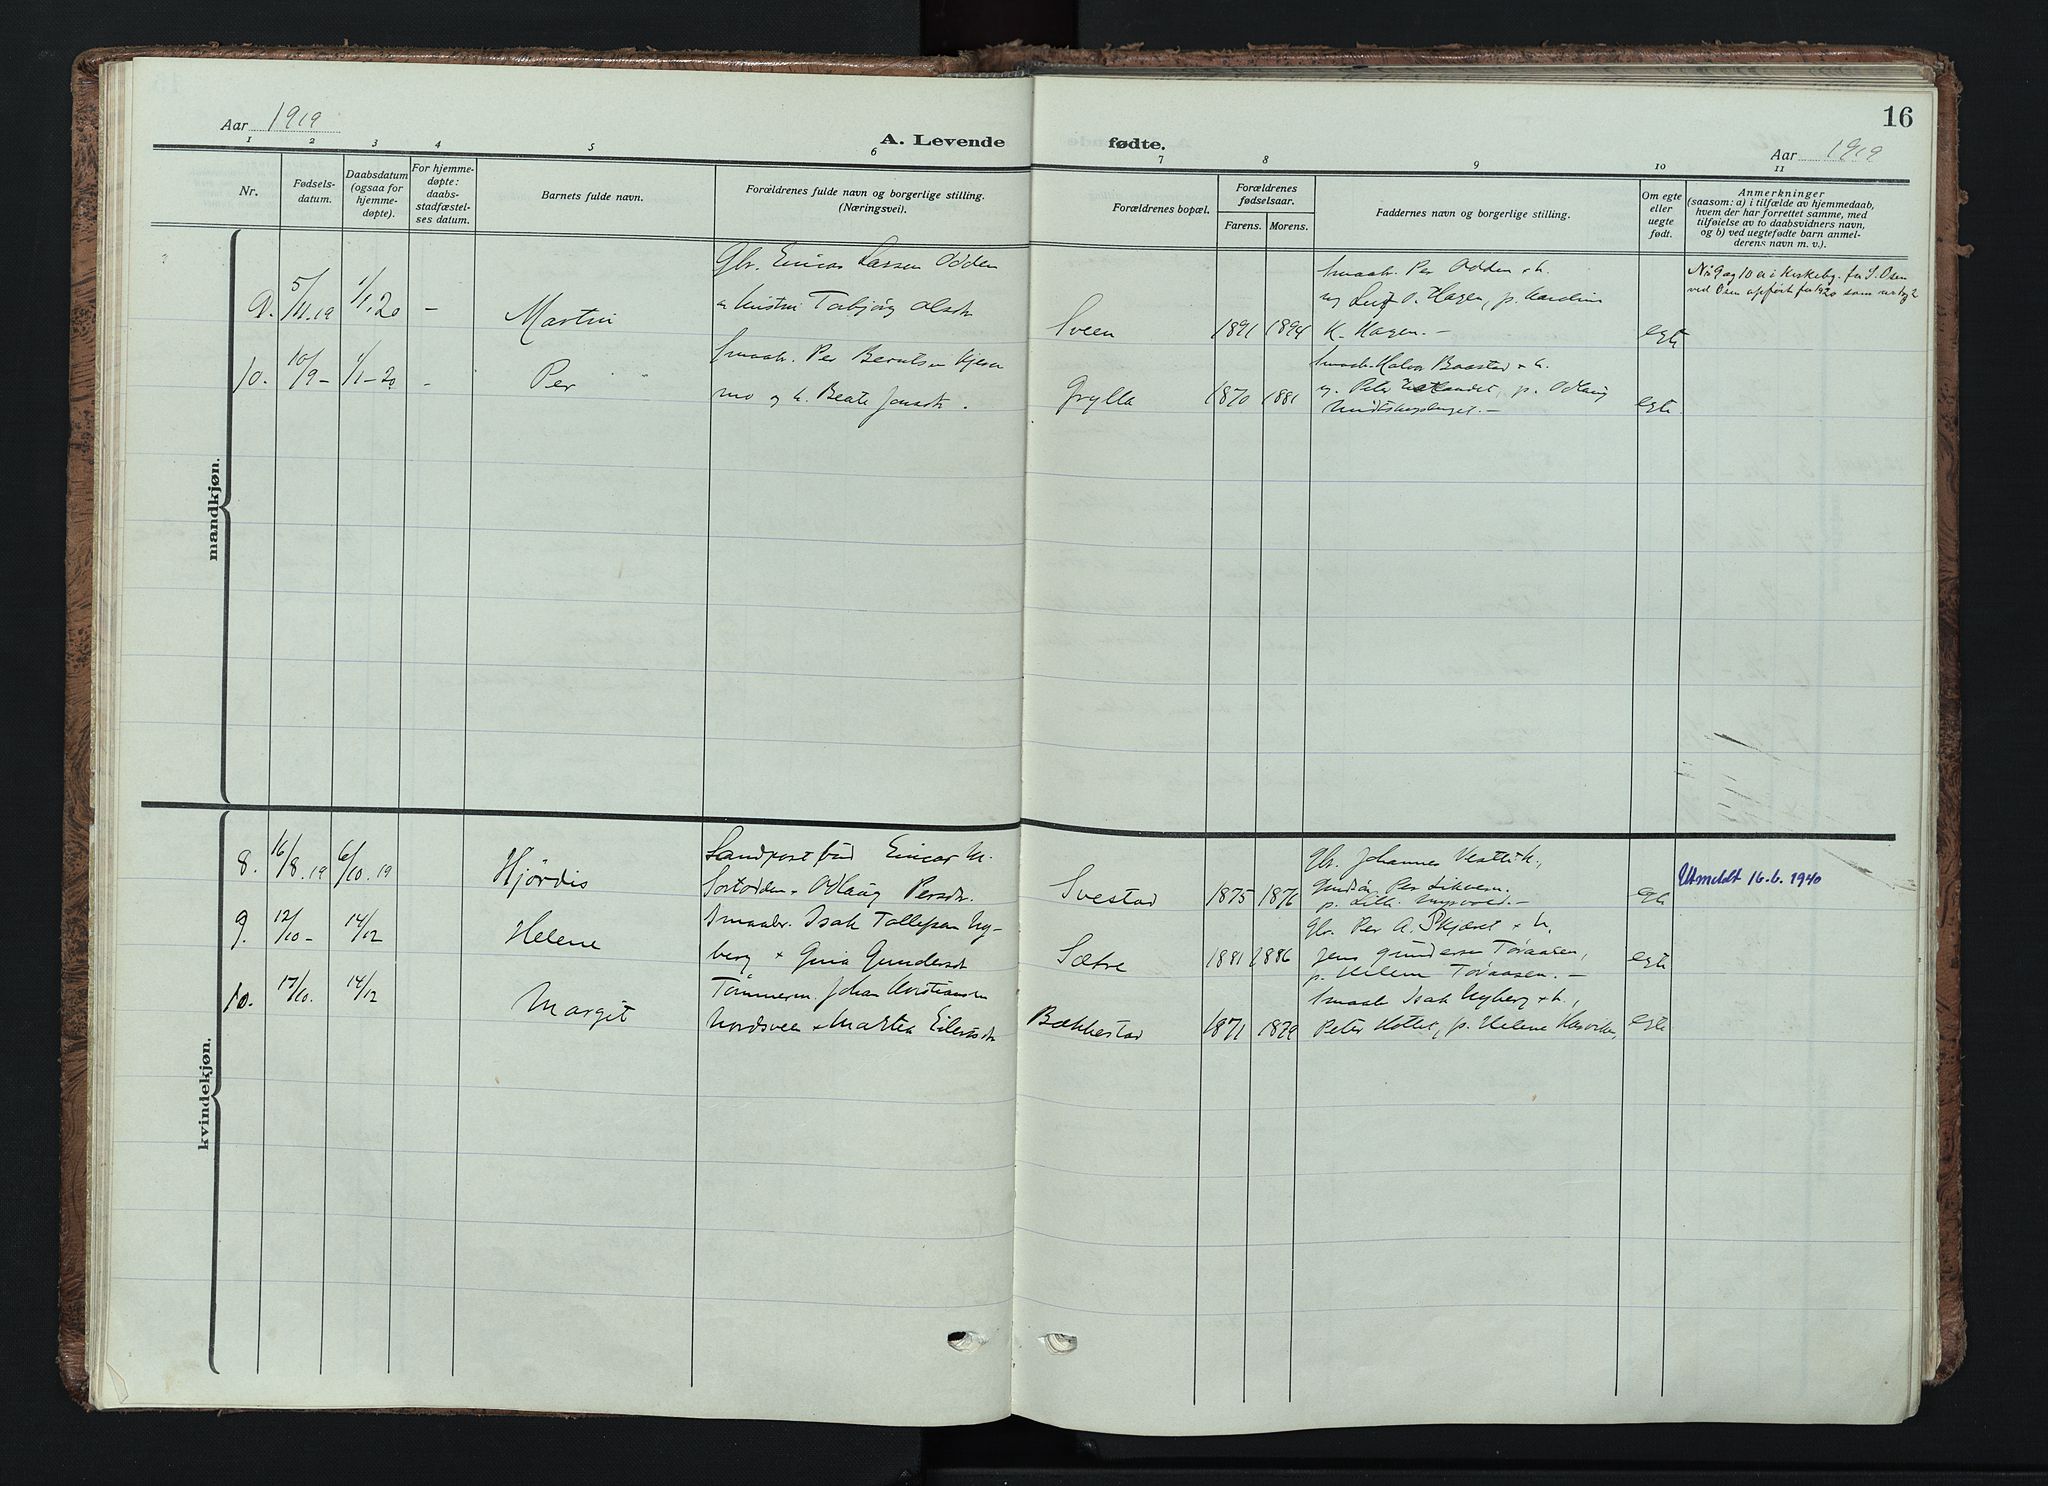 16
Aar 1919
A. Levende fødte.
Aar 1919
1 2 3 4 5 6 7 8 9 10 11
Nr.
Fødsels-
datum.
Daabsdatum
(ogsaa for
hjemme-
døpte).
For hjemme-
døpte:
daabs-
stadfæstel-
ses datum.
Barnets fulde navn.
Forældrenes fulde navn og borgerlige stilling.
(Næringsvei).
Forældrenes bopæl.
Forældrenes
fødselsaar.
Farens. Morens.
Faddernes navn og borgerlige stilling.
Om egte
eller
uegte
født.
Anmerkninger
(saasom: a) i tilfælde av hjemmedaab,
hvem der har forrettet samme, med
tilføielse av to daabsvidners navn,
og b) ved uegtefødte barn anmel-
derens navn m. v.).
mandkjøn.
Gbr. Einar Larsen Odden
9. 5/11.19 1/1.20 – Martin
Torbjørg Olsdtr
Sveen 1891 1894
Smaabr. Per Odden + h.
O. Hagen, p. Karoline
K. Hagen. –
egte
No 9 og 10 er i Kirkebg. for S. Osen
ved Osen opført for 1920 som
10. 10/9 – 1/1–20 – Per
Smaabr. Per Berntsen
mo og h. Beate Jonsdtr.
Grylla 1870 1881
Smaabr. Halvor Baastad + h.
Peter p. Odlaug
egte
kvindekjøn.
8. 16/8.19 6/10.19 Hjördis
Landpostbud Einar M.
Odlaug Persdtr.
Svestad 1875 1876
Gbr. Johannes h.,
Per
p.
egte
Utmeldt 16.6.1940
9. 12/10 – 14/12 Helene
Smaabr. Isak Tollefsen Ny-
berg + Gina Gundersdtr
Sætre 1881 1886
Gbr. Per A. Skjæret + h.
Jens Gundersen Toraasen,
p. Helene Toraasen. –
egte
10. 17/10. 14/12 Margit
Tømmerm. Johan Kristiansen
Nordsveen + Martea Eilertsdtr
Bækkestad 1871 1879
Smaabr. Isak Nyberg + h.,
Peter p. Helene
egte